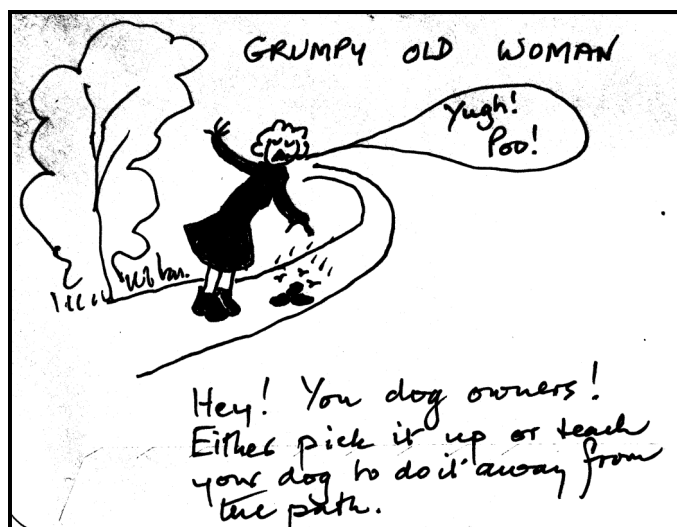 GRUMPY OLD WOMAN
Yugh!
Poo!
Hey! You dog owners!
Either pick it up or teach
your dog to do it away from
the path.